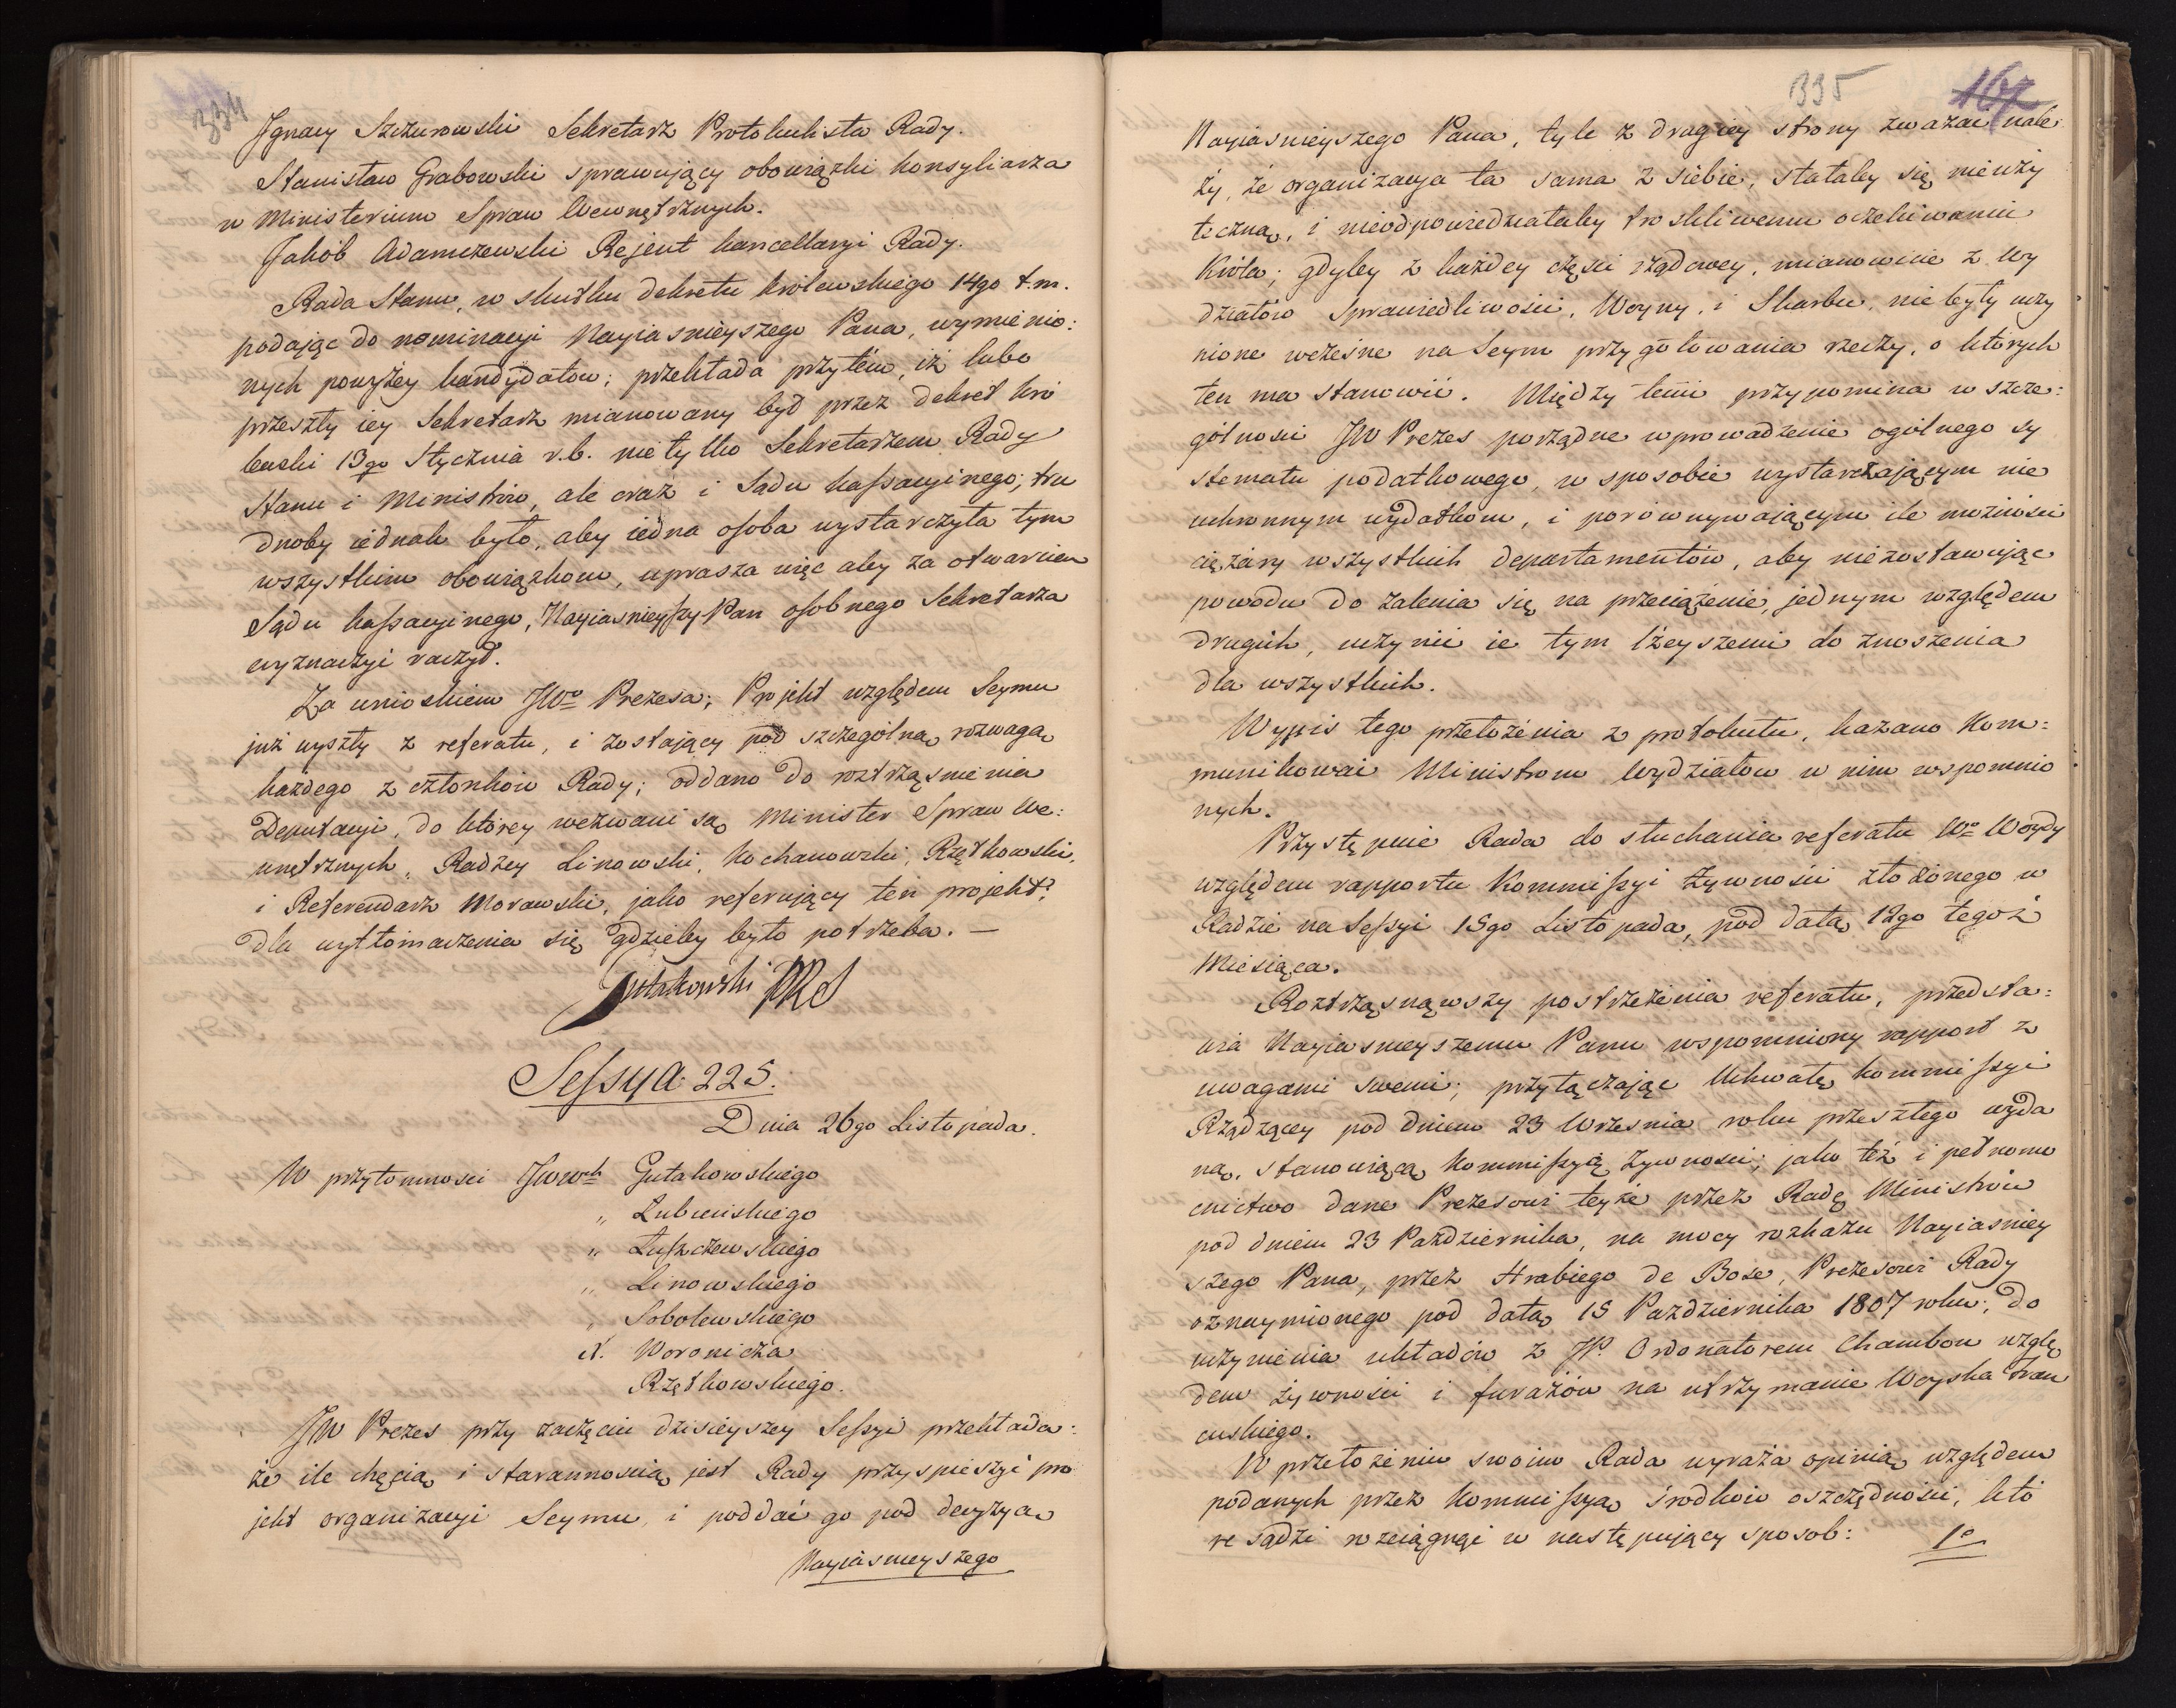 334
Ignacy Szczurowski Sekretarz Protokulista Rady.
Stanisław Grabowski sprawujący obowiązki konsyliarza
w Ministerium Spraw Wewnętrznych.
Jakób Adamczewski Rejent kancellaryi Rady.
Rada Stanu, w skutku dekretu królewskiego 14go t.m.
podając do nominacyi Nayiasnieyszego Pana, wymienio:
nych powyżey kandydatow; przekłada przytém, iż lubo
przeszły iey Sekretarz mianowany był przez dekret kró
lewski 13go Stycznia r.b. nie tylko Sekretarzem Rady
Stanu i Ministrów, ale oraz i Sądu kaſsacyinego; tru
dnoby iednak było, aby iedna osoba wystarczyła tym
wszystkim obowiązkom, uprasza więc aby za otwarciem
Sądu kaſsacyinego, Nayiasnieyſzy Pan osobnego Sekretarza
wyznaczyć raczył.
Za wnioskiem JWo Prezesa; Projekt względem Seymu
już wyszły z referatu, i zostający pod szczególną rozwagą
każdego z członków Rady; oddano do roztrząśnienia
Deputacyi, do którey wezwani są Minister Spraw We:
wnętrznych, Radzcy Linowski, Kochanowski, Rzętkowski,
i Referendarz Morawski, jako referujący ten projekt,
dla wytłomaczenia się gdzieby było potrzeba. —
Gutakowski PRS
Seſsya 225.
Dnia 26go Listopada.
W przytomnosci JWWch Gutakowskiego
„ Łubieńskiego
„ Łuſzczewskiego
„ Linowskiego
„ Sobolewskiego
X. Woronicza
Rzętkowskiego.
JW Prezes przy zaczęciu dzisieyszey Seſsyi przekłada:
że ile chęcią i starannoscią jest Rady przyspieszyć pro
jekt organizacyi Seymu, i poddać go pod decyzyą
Nayiasnieyszego
335
167
Nayiasnieyszego Pana, tyle z drugiey strony zważać nale:
ży, że organizacya ta sama z siebie, stałaby się nieuży
teczną, i nieodpowiedziałaby troskliwemu oczekiwaniu
Króla; gdyby z każdey części rządowey, mianowicie z Wy
działów Sprawiedliwości, Woyny, i Skarbu, nie były uczy
nione wcześne na Seym przygotowania rzeczy, o których
ten ma stanowić. Między temi przypomina w szcze:
gólności JW Prezes porządne wprowadzenie ogólnego sy
stematu podatkowego, w sposobie wystarczającym nie
uchronnym wydatkom, i porównywającym ile możności
ciężary wszystkich departamentów, aby niezostawując
powodu do żalenia się na przeciążenie, jednym względem
drugich, uczynić ie tym lżeyszemi do znoszenia
dla wszystkich.
Wypis tego przełożenia z protokułu, kazano Kom:
munikować Ministrom Wydziałow w nim wspomnio
nych.
Przystępuie Rada do słuchania referatu Wo Woydy
względem rapportu Kommiſsyi żywności złożonego w
Radzie na Seſsyi 15go Listopada, pod datą 12go tegoż
Miesiąca.
Roztrząsnąwszy postrzeżenia referatu, przedsta:
wia Nayiasnieyszemu Panu wspomniony rapport z
uwagami swemi; przyłączając Uchwałę kommiſsyi
Rządzącey pod dniem 23 Września roku przeszłego wyda
ną, stanowiącą Kommiſsyą żywnosci; jako też i pełnomo
cnictwo dane Prezesowi teyże przez Radę Ministrów
pod dniem 23 Października, na mocy rozkazu Nayiasniey
szego Pana, przez Hrabiego de Bose, Prezesowi Rady
oznaymionego pod datą 15 Października 1807 roku; do
uczynienia układów z JP. Ordonatorem Chambon wzglę
dem żywności i furażów na utrzymanie Woyska Fran
cuskiego.
W przełożeniu swoim Rada wyraża opinią względem
podanych przez Kommiſsyą środków oszczędności, któ
re sądzi rozciągnąć w następujący sposob:
1o